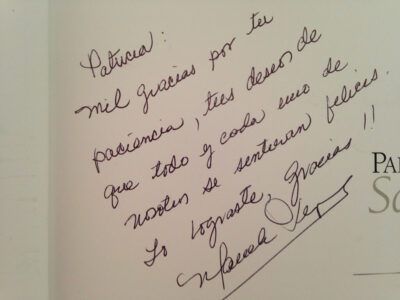 Patricia:
Mil gracias por tu
paciencia, tus deseos de
que todo y cada uno de
nosotros se sintieran felices.
Lo lograste, gracias!!
PA
Sa